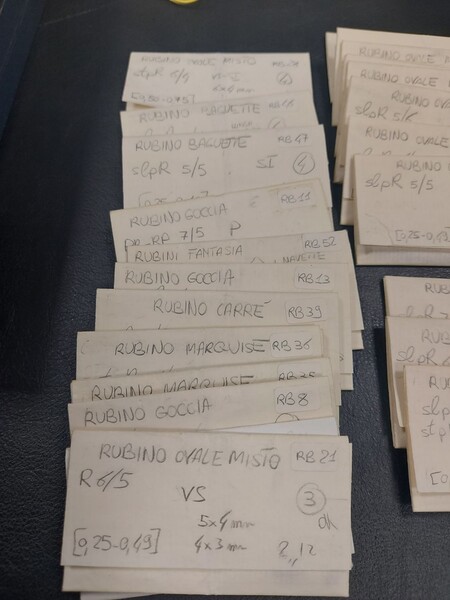 RUBINO OVALE MISTO
slpR 5/5
4x4 mm
RUBINO BAGUETTE
RUBINO BAGUETTE RB47
slpR 5/5 SI 4
RUBINO GOCCIA RB11
pR-RP 7/5 P
RUBINI FANTASIA RB52
NAVETTE
RUBINO GOCCIA RB13
RUBINO CARRÉ RB39
RUBINO MARQUISE RB36
RUBINO MARQUISE
RUBINO GOCCIA RB8
RUBINO OVALE MISTO RB21
R 6/5 VS 3
5x4 mm ok
[0,25-0,49] 4x3 mm 2,,12
RUBINO OVALE
RUBINO OVALE
RUBINO OVALE
slpR 5/6
RUBINO OVALE
RUBINO
slpR 5/5
[0,25-0,49]
RUB
RUB
slpR
RU
slp
stp
[0